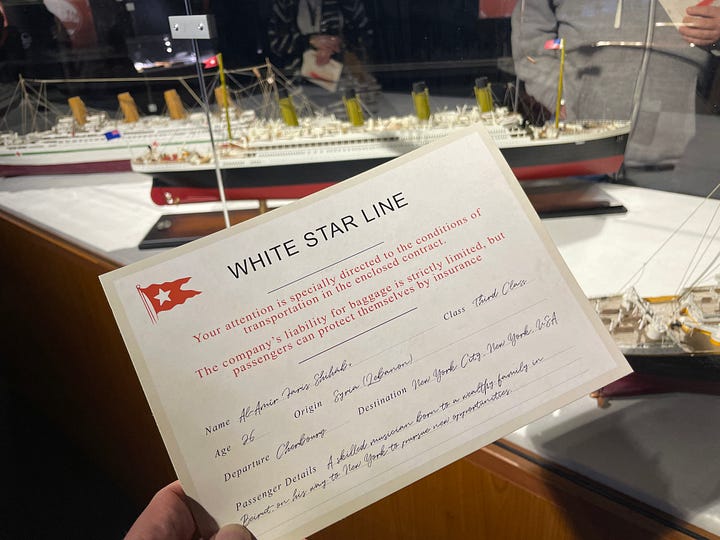 WHITE STAR LINE
Your attention is specially directed to the conditions of
transportation in the enclosed contract.
The company's liability for baggage is strictly limited, but
passengers can protect themselves by insurance
Name Al-Amir Faris Shihab. Class Third Class
Age 26 Origin Syria (Lebanon)
Departure Cherbourg Destination New York City, New York, USA
Passenger Details A skilled musician born to a wealthy family in
Beirut on his way to New York to pursue new opportunities.